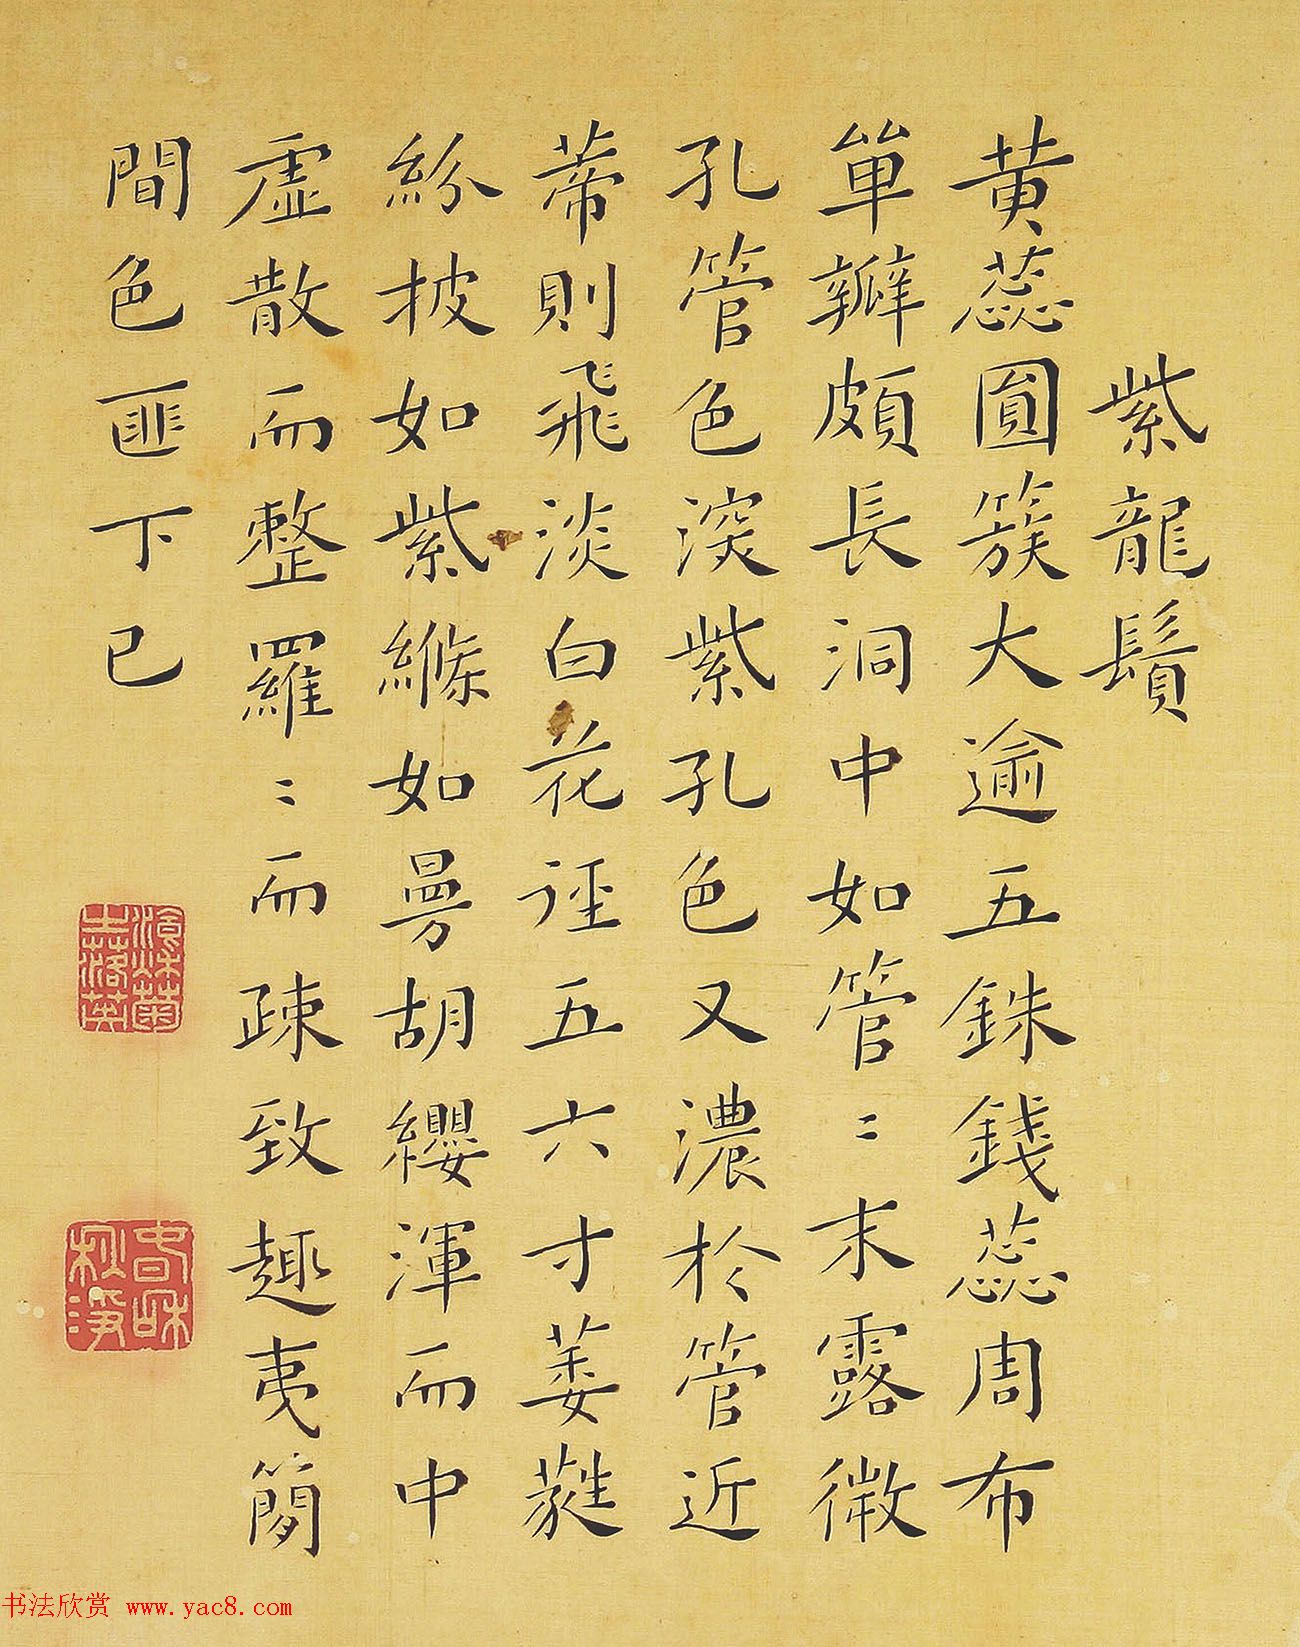 紫龍鬚
黃蕊圓簇大逾五銖錢蕊周布
單瓣頗長洞中如管〻末露微
孔管色淡紫孔色又濃於管近
蒂則飛淡白花徑五六寸蔞蕤
紛披如紫絛如曼胡纓渾而中
虛散而整羅〻而疎致趣夷簡
間色匪下已
书法欣赏 www.yac8.com